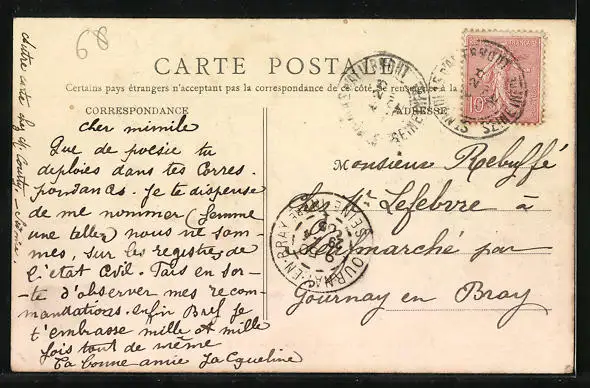 68
CARTE POSTALE
Certains pays étrangers n'acceptant pas la correspondance de ce côté, se renseigner à la
CORRESPONDANCE
ADRESSE
cher mimile
Que de poesie tu
deploies dans tes Corres.
pondances. Je te dispense
de me nommer (femme
une telle) nous ne som-
mes, sur les registres de
l'etat civil. Tais en sor-
-te d'observer mes recom-
mandations. enfin Bref je
t'embrasse mille et mille
fois tout de même
Ta bonne amie Jacqueline
Monsieur Rebuffé
chez Mr Lefebvre à
marché par
Gournay en Bray
l'autre carte chez
10
SEINE
GOURNAY-EN-BRAY
SEINE INFRE